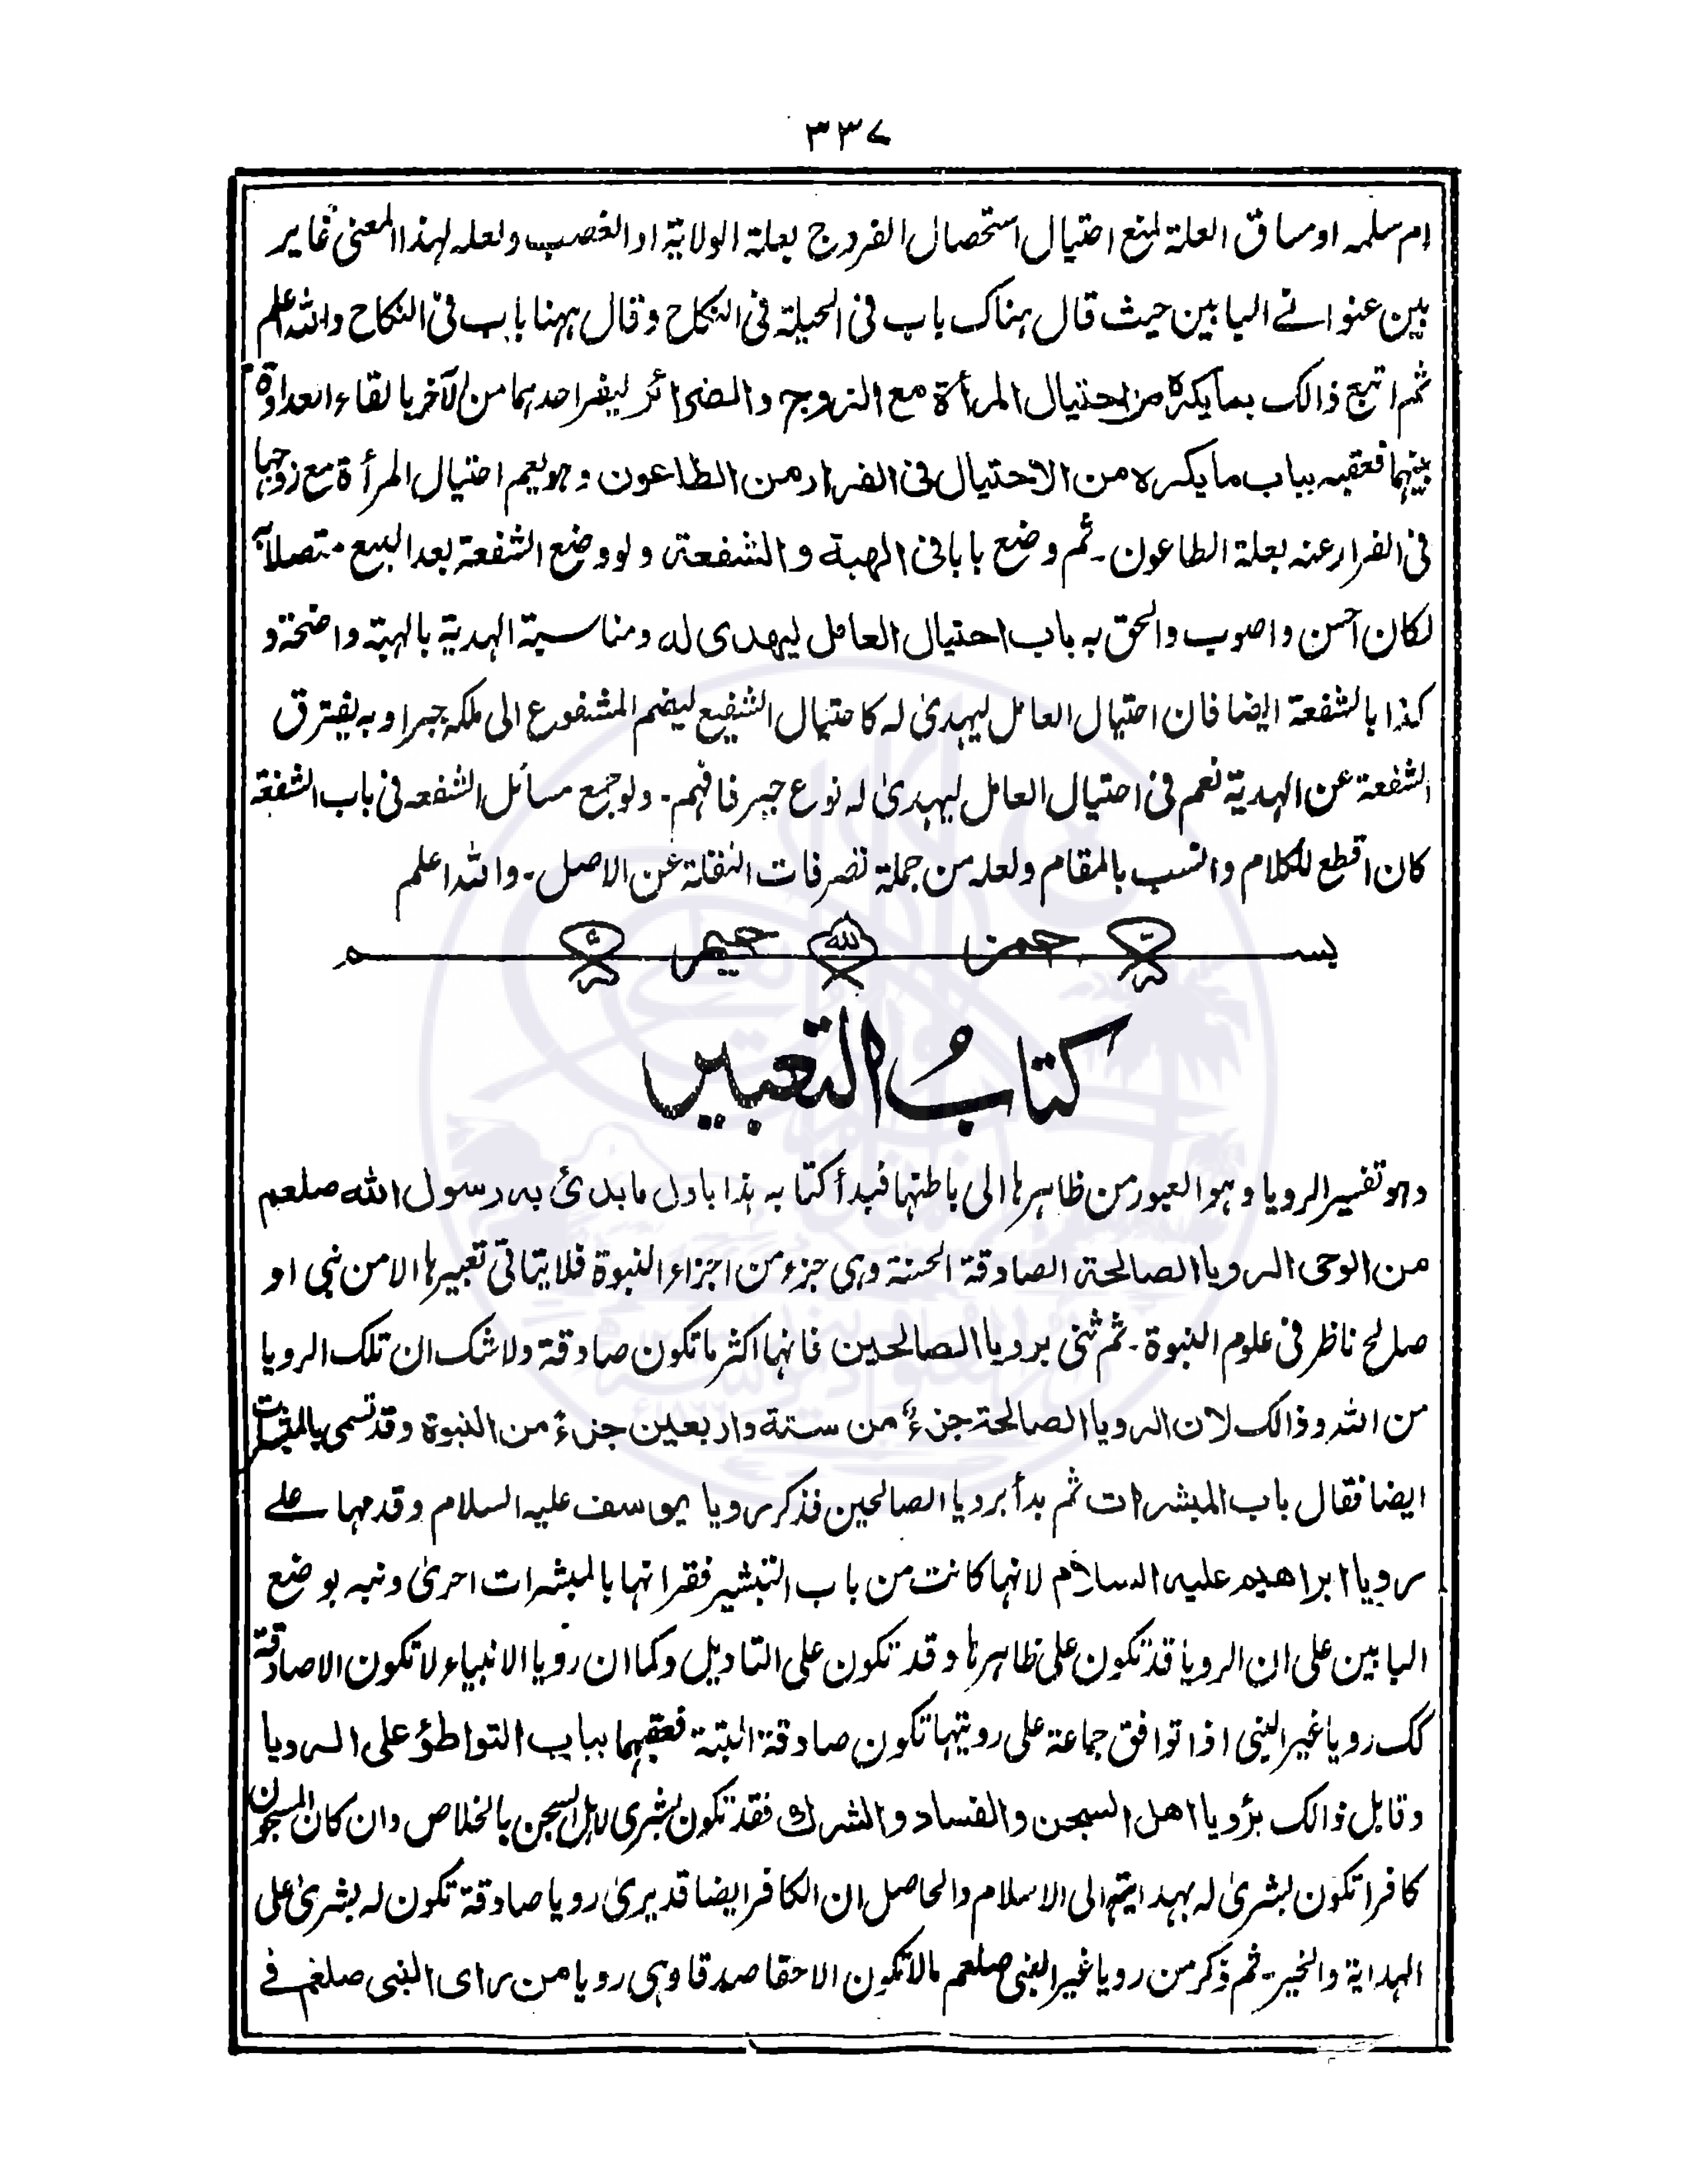 ٣٣٧
ام سلمه او ساق العلة لمنع احتيال استحصال الفروج بعلة الولاية او الغصب ولعله لهذا المعنى غاير
بين عنوانے البابين حيث قال هناك باب فى الحيلة فى النكاح وقال ههنا باب فى النكاح والله اعلم
ثم اتبع ذالك بما يكره من احتيال المرأة مع الزوج والضرائر ليفر احدهما من الآخر بالقاء العداوة
بينهما فعقبه بباب ما يكره من الاحتيال فى الفرار من الطاعون وهو يعم احتيال المرأة مع زوجها
فى الفرار عنه بعلة الطاعون ـ ثم وضع بابا فى الهبة والشفعة ولو وضع الشفعة بعد البيع متصلا به
لكان احسن واصوب والحق به باب احتيال العامل ليهدى له ومناسبة الهدية بالهبة واضحة و
كذا بالشفعة ايضا فان احتيال العامل ليهدىٰ له كاحتيال الشفيع ليضم المشفوع الى ملكه جبرا وبه يفترق
الشفعة عن الهدية نعم فى احتيال العامل ليهدىٰ له نوع جبر فافهم ـ ولو جمع مسائل الشفعه فى باب الشفعة
كان اقطع للكلام وانسب بالمقام ولعله من جملة تصرفات النقلة عن الاصل ـ والله اعلم
بسم الله الرحمن الرحيم
كتابُ التعبير
وهو تفسير الرويا وهو العبور من ظاهرها الى باطنها فبدأ كتابه هذا باول ما بدئ به رسول الله صلعم
من الوحى الرويا الصالحة الصادقة الحسنة وهى جزء من اجزاء النبوة فلا يتاتى تعبيرها الا من نبى او
صالح ناظر فى علوم النبوة ـ ثم ثنى برويا الصالحين فانها اكثر ما تكون صادقة ولا شك ان تلك الرويا
من الله وذالك لان الرويا الصالحة جزءٌ من ستة واربعين جزءً من النبوة وقد تسمى بالمبشرات
ايضا فقال باب المبشرات ثم بدأ برويا الصالحين فذكر رويا يوسف عليه السلام وقدمها علے
رويا ابراهيم عليه السلام لانها كانت من باب التبشير فقرانها بالمبشرات احرىٰ ونبه بوضع
البابين على ان الرويا قد تكون على ظاهرها وقد تكون على التاويل وكما ان رويا الانبياء لا تكون الا صادقة
كك رويا غير النبى اذا توافق جماعة على رويتها تكون صادقة البتة فعقبهما بباب التواطؤ على الرويا
وقابل ذالك برؤيا اهل السجن والفساد والشرك فقد تكون بشرى لاهل السجن بالخلاص وان كان المسجون
كافرا تكون بشرىٰ له بهدايته الى الاسلام والحاصل ان الكافر ايضا قد يرىٰ رويا صادقة تكون له بشرىٰ على
الهداية والخير ـ ثم ذكر من رويا غير النبى صلعم مالا تكون الا حقا صدقا وهى رويا من راى النبى صلعم فے